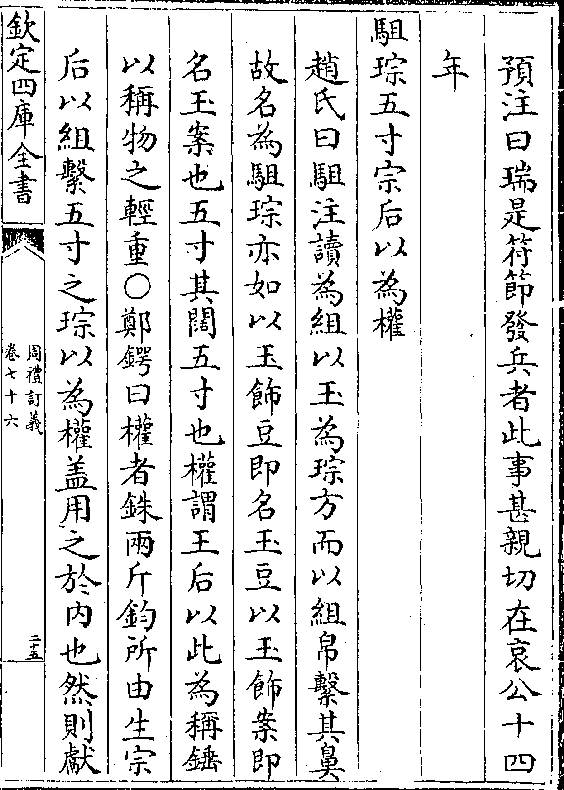 預注曰瑞是符節發兵者此事甚親切在哀公十四
年
駔琮五寸宗后以為權
趙氏曰駔注讀為組以玉為琮方而以組帛繫其鼻
故名為駔琮亦如以玉飾豆即名玉豆以玉飾案即
名玉案也五寸其闊五寸也權謂王后以此為稱錘
以稱物之輕重○鄭鍔曰權者銖兩斤鈞所由生宗
后以組繫五寸之琮以為權盖用之於内也然則獻
欽定四庫全書
周禮訂義
卷七十六
二十五